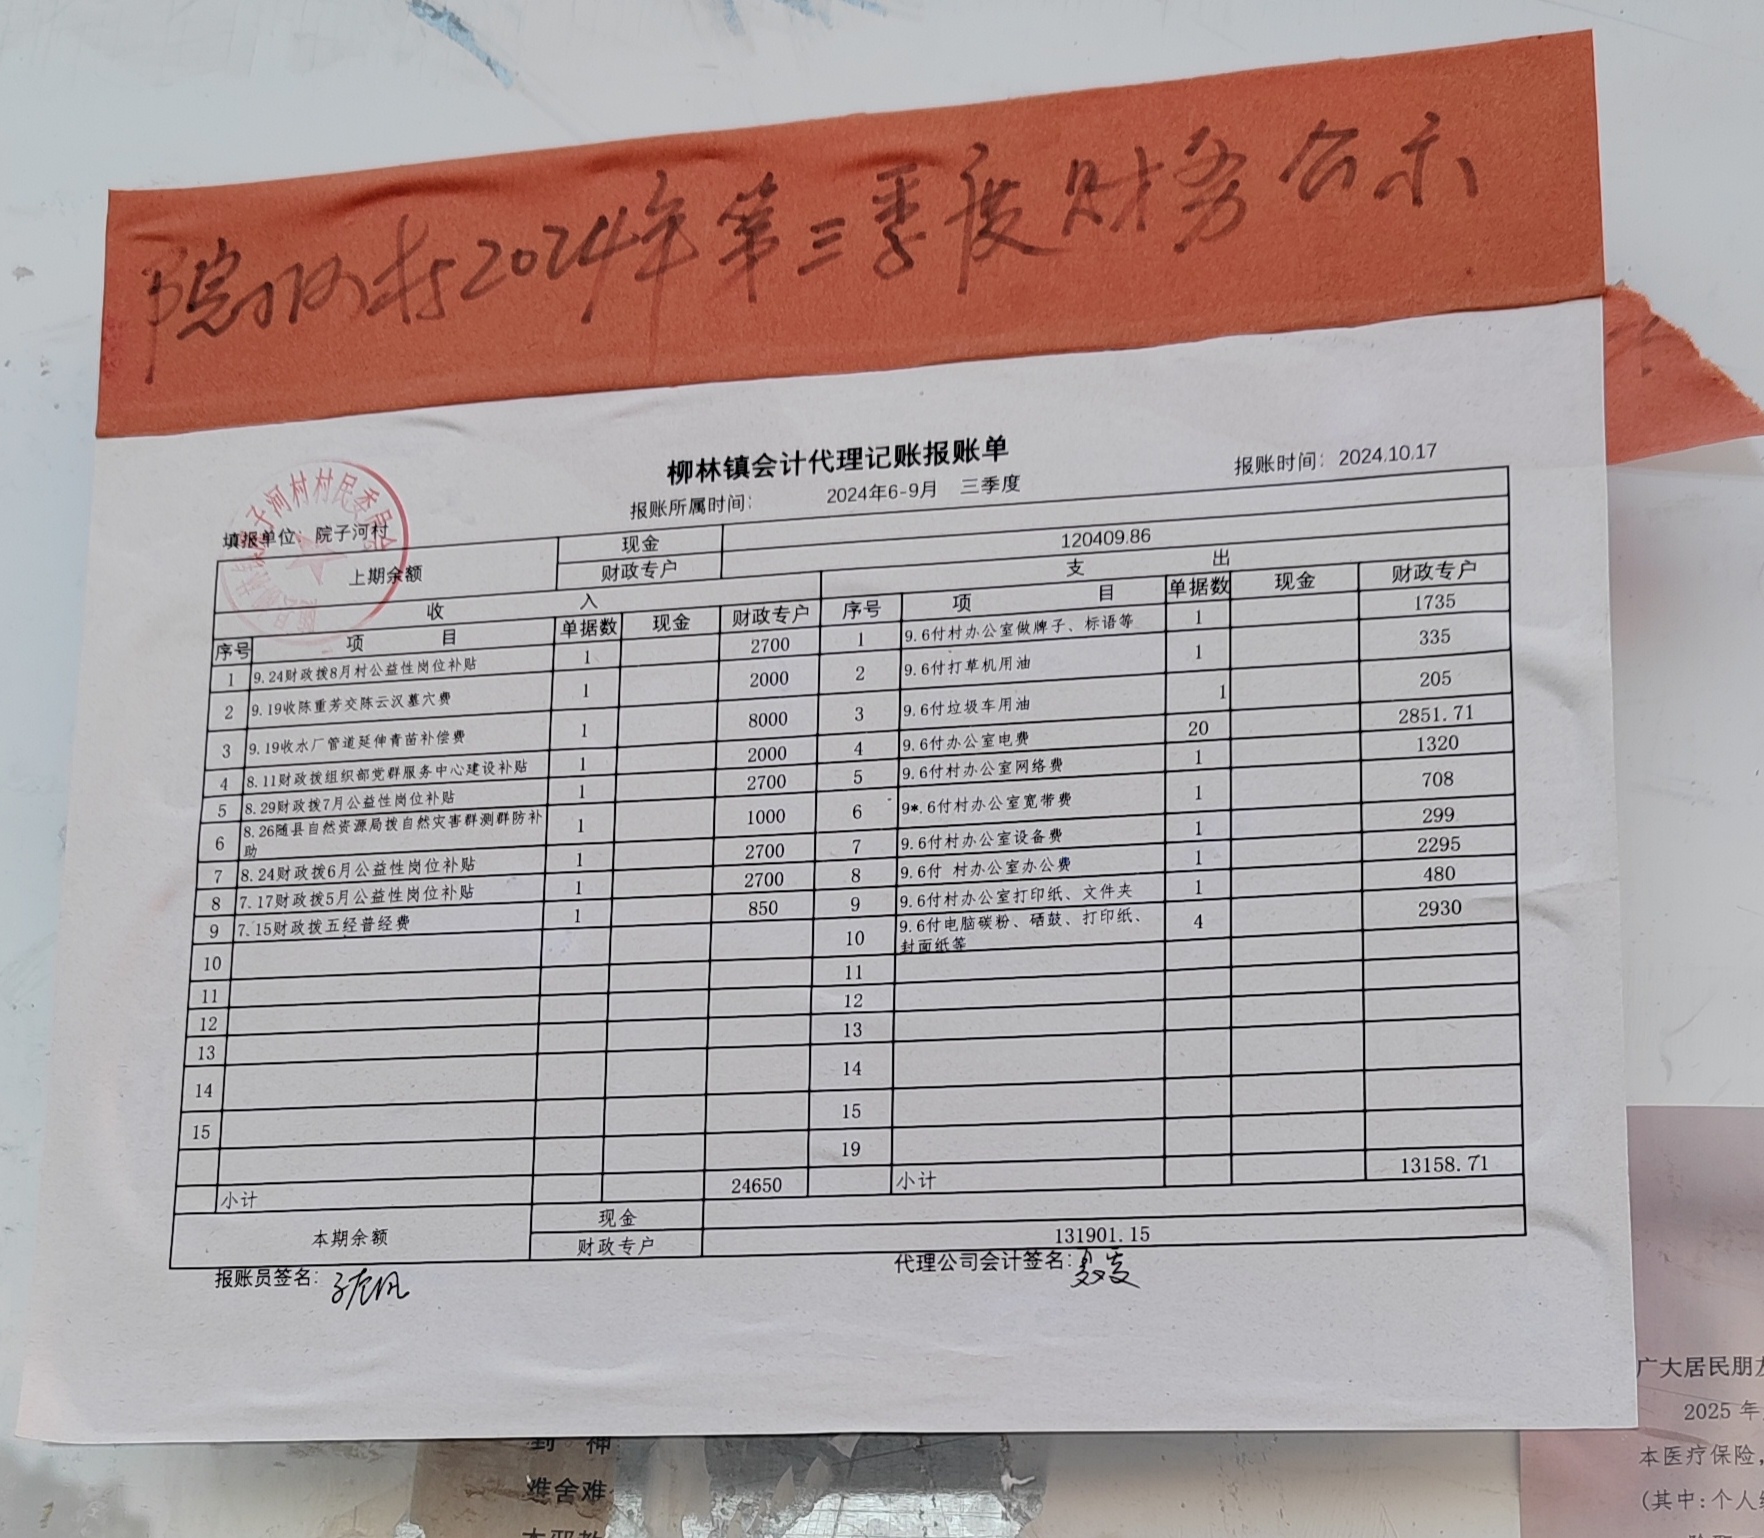 院子河村2024年第三季度财务公示
柳林镇会计代理记账报账单
报账所属时间： 2024年6-9月 三季度 报账时间：2024.10.17
填报单位：院子河村
子河村村民委员会
上期余额 现金
财政专户 120409.86
收 入 支 出
序号 项 目 单据数 现金 财政专户 序号 项 目 单据数 现金 财政专户
1 9.24财政拨8月村公益性岗位补贴 1 2700 1 9.6付村办公室做牌子、标语等 1 1735
2 9.19收陈重芳交陈云汉墓穴费 1 2000 2 9.6付打草机用油 1 335
3 9.19收水厂管道延伸青苗补偿费 1 8000 3 9.6付垃圾车用油 1 205
4 8.11财政拨组织部党群服务中心建设补贴 1 2000 4 9.6付办公室电费 20 2851.71
5 8.29财政拨7月公益性岗位补贴 1 2700 5 9.6付村办公室网络费 1 1320
6 8.26随县自然资源局拨自然灾害群测群防补助 1 1000 6 9*.6付村办公室宽带费 1 708
7 8.24财政拨6月公益性岗位补贴 1 2700 7 9.6付村办公室设备费 1 299
8 7.17财政拨5月公益性岗位补贴 1 2700 8 9.6付 村办公室办公费 1 2295
9 7.15财政拨五经普经费 1 850 9 9.6付村办公室打印纸、文件夹 1 480
10 10 9.6付电脑碳粉、硒鼓、打印纸、封面纸等 4 2930
11 11
12 12
13 13
14 14
15 15
19
小计 24650 小计 13158.71
本期余额 现金
财政专户 131901.15
报账员签名： 代理公司会计签名：
广大居民朋友
2025 年
本医疗保险，
(其中:个人
到 神
难舍难